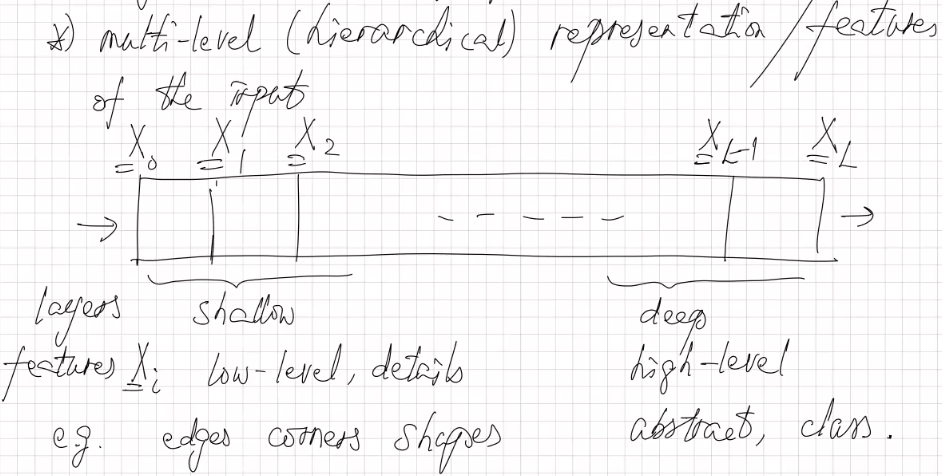 *) multi-level (hierarchical) representation / features
of the input
X₀ X₁ X₂ X_L-1 X_L
layers shallow deep
features Xᵢ low-level, details high-level
e.g. edges corners shapes abstract, class.